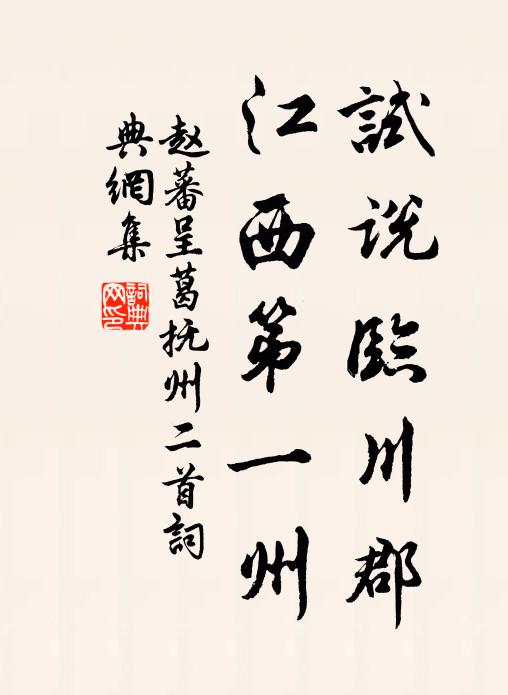 試说臨川郡
江西第一州
赵蕃呈葛抚州二首詞
典網集
詞典网印